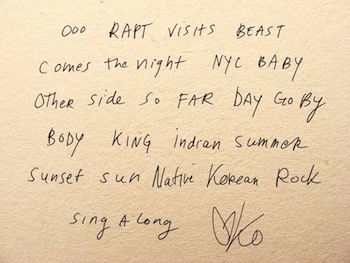 OOO RAPT VISITS BEAST
Comes the night NYC BABY
Other side so FAR DAY GO BY
BODY KING indian summer
Sunset sun Native Korean Rock
Sing A Long KO